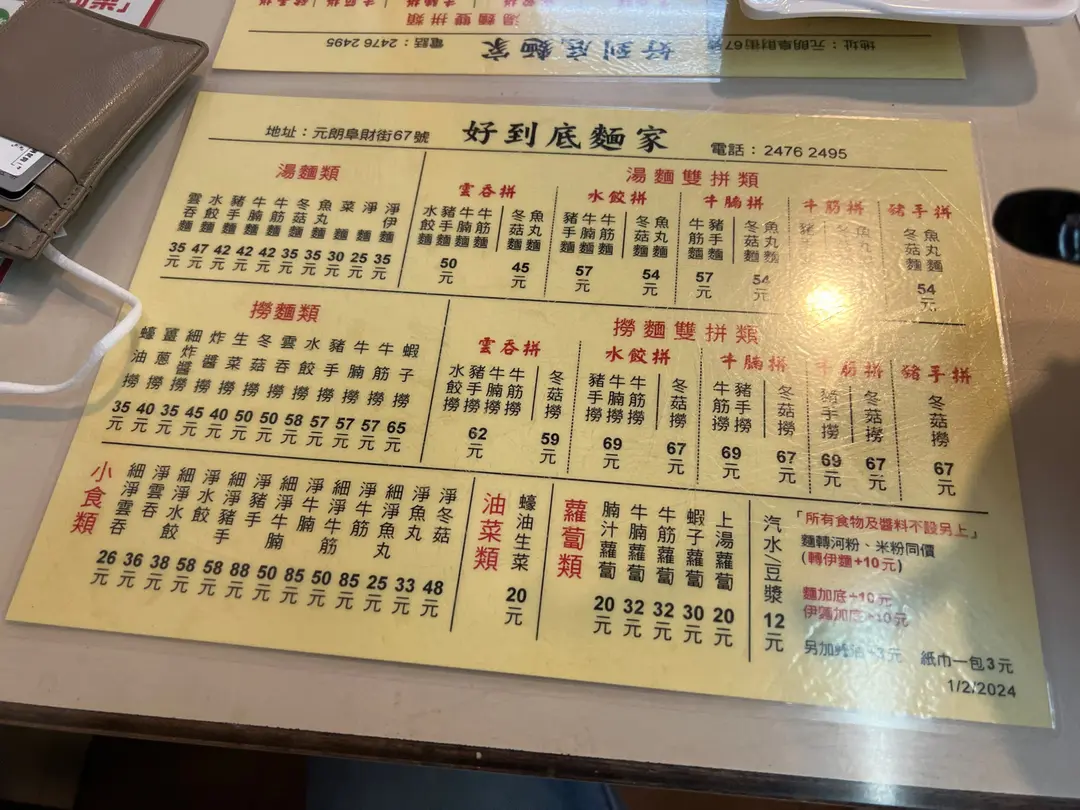 湯麵雙拼類
好到底麵家
電話：2476 2495
地址：元朗阜財街67號
地址：元朗阜財街67號
好到底麵家
電話：2476 2495
湯麵類
雲吞麵 35元
水餃麵 47元
豬手麵 42元
牛腩麵 42元
牛筋麵 42元
冬菇麵 35元
魚丸麵 35元
菜麵 30元
淨麵 25元
淨伊麵 35元
湯麵雙拼類
雲吞拼
水餃麵 豬手麵 牛腩麵 牛筋麵 50元
冬菇麵 魚丸麵 45元
水餃拼
豬手麵 牛腩麵 牛筋麵 57元
冬菇麵 魚丸麵 54元
牛腩拼
牛筋麵 豬手麵 57元
冬菇麵 魚丸麵 54元
牛筋拼
豬
豬手拼
冬菇麵 魚丸麵 54元
撈麵類
蠔油撈 35元
薑蔥撈 40元
細炸醬撈 35元
炸醬撈 45元
生菜撈 40元
冬菇撈 50元
雲吞撈 50元
水餃撈 58元
豬手撈 57元
牛腩撈 57元
牛筋撈 57元
蝦子撈 65元
撈麵雙拼類
雲吞拼
水餃撈 豬手撈 牛腩撈 牛筋撈 62元
冬菇撈 59元
水餃拼
豬手撈 牛腩撈 牛筋撈 69元
冬菇撈 67元
牛腩拼
牛筋撈 豬手撈 69元
冬菇撈 67元
牛筋拼
豬手撈 69元
冬菇撈 67元
豬手拼
冬菇撈 67元
小食類
細淨雲吞 26元
淨雲吞 36元
細淨水餃 38元
淨水餃 58元
細淨豬手 58元
淨豬手 88元
細淨牛腩 50元
淨牛腩 85元
細淨牛筋 50元
淨牛筋 85元
細淨魚丸 25元
淨魚丸 33元
淨冬菇 48元
油菜類
蠔油生菜 20元
蘿蔔類
腩汁蘿蔔 20元
牛腩蘿蔔 32元
牛筋蘿蔔 32元
蝦子蘿蔔 30元
上湯蘿蔔 20元
汽水/豆漿 12元
「所有食物及醬料不設另上」
麵轉河粉、米粉同價
(轉伊麵+10元)
麵加底+10元
伊麵加底+10元
另加 元 紙巾一包3元
1/2/2024